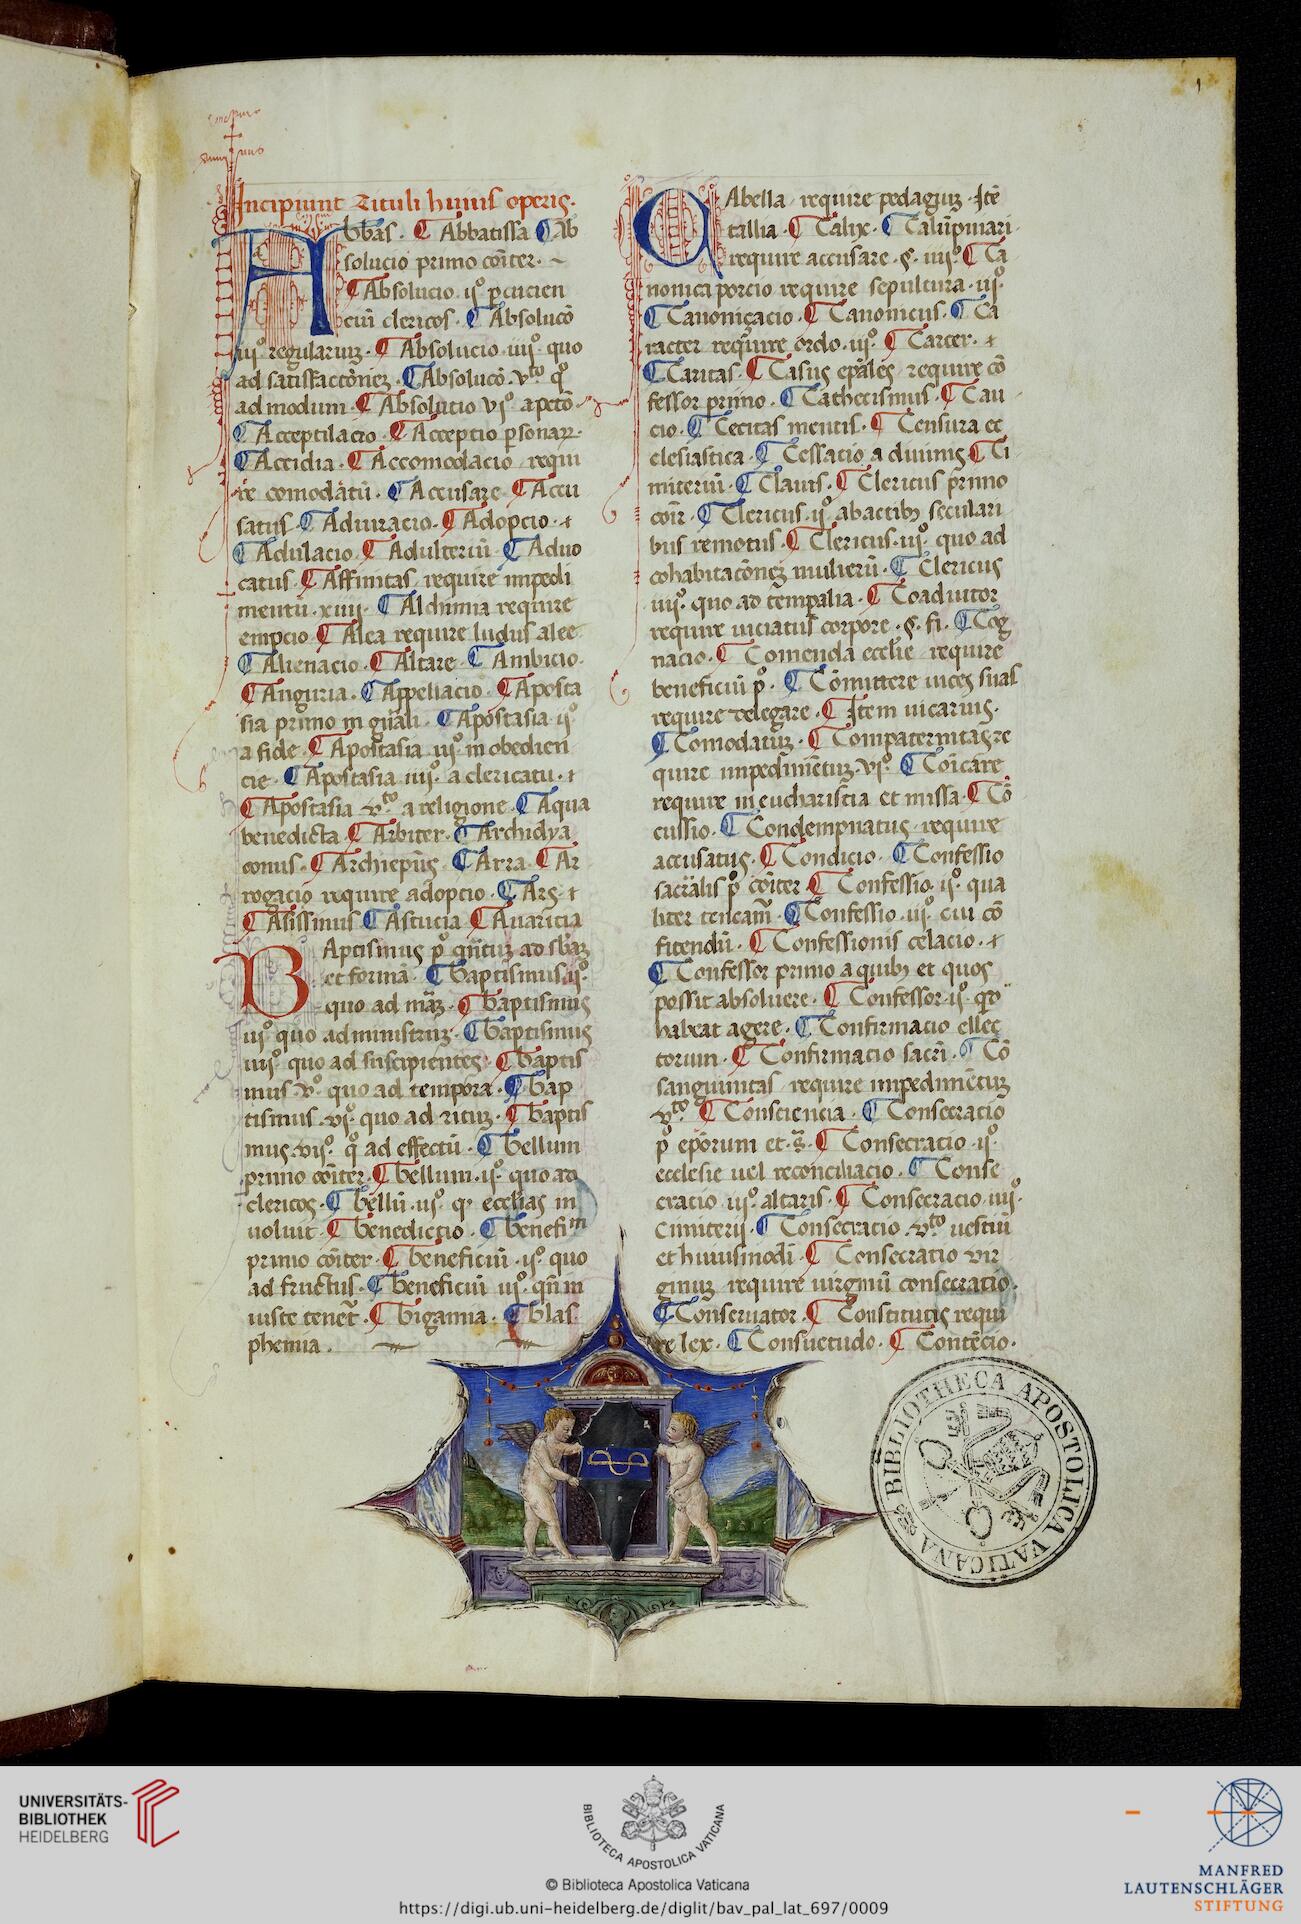 1
Incipiunt Tituli huius operis.
Abbas. Abbatissa Ab
solucio primo cōiter.
Absolucio .ijº. percucien
ciū clericos. Absolucō
iijº regulariuʒ. Absolucio .iiijº. quo
ad satisfactōneʒ. Absolucō. vto qº
ad modum. Absolucio vjº. a petō.
Acceptilacio. Acceptio psonaꝝ.
Accidia. Accomodacio requi
re comodatū. Accusare Accu
satus. Adiuracio. Adopcio.
Adulacio. Adulteriū. Aduo
catus. Affinitas require impedi
mentū .xiiij. Alchimia require
empcio Alea require ludus alee
Alienacio. Altare. Ambicio.
Anguria. Appellacio. Aposta
sia primo in gñali. Apostasia .ijº
a fide. Apostasia .iijº. inobedien
cie. Apostasia iiijº. a clericatu.
Apostasia vto a religione. Aqua
benedicta. Arbiter. Archidya
conus. Archiepūs. Arra. Ar
rogacio require adopcio. Ars
Asissinus Astucia Auaricia
Baptismus pº
et formā. Baptismus ijº.
quo ad mãʒ. Baptismus
iijº quo ad ministrūʒ. Baptismus
iiijº quo ad suscipientes. Baptis
mus .vº. quo ad tempora. Bap
tismus .vjº. quo ad rituʒ. Baptis
mus .vijº. qº ad effectū. Bellum
primo cōiter. Bellum .ijº. quo ad
clericos. Bellū .iijº. ecclias in
uoluit. Benedictio. Benefim
primo cōiter. Beneficiū .ijº. quo
ad fructus. Beneficiū iijº. qñ in
iuste tenet̄. Bigamia. Blas
phemia.
Cabella require pedagiuʒ. Itē
tallia. Calix. Calūpniari
require accusare .§. iiijº Ca
nonica porcio require sepultura .iijº.
Canonizacio. Canonicus. Ca
racter require ordo .iijº. Carcer.
Caritas. Casus epāles require cō
fessor primo. Cathecismus. Cau
cio. Cecitas mentis. Censura ec
clesiastica. Cessacio a diuinis Ci
miteriū. Clauis. Clericus primo
cōir. Clericus .ijº. ab actibꝫ seculari
bus remotus. Clericus .iijº. quo ad
cohabitacōneʒ mulierū. Clericus
iiijº. quo ad tempalia. Coadiutor
require uiciatus corpore .§. fi. Cog
nacio. Comenda ecclie require
beneficiū pº. Cōmittere uices suas
require delegare. Item uicarius.
Comodatūʒ. Compaternitas re
quire impedimētuʒ. vjº. Cōicare
require in eucharistia et missa. Cō
cussio. Condempnatus require
accusatus. Condicio. Confessio
sac̄alis pº cōiter. Confessio ijº. qua
liter tencam̄. Confessio .iijº. cui cō
fitendū. Confessionis celacio.
Confessor primo a quibꝫ et quos
possit absoluere. Confessor .ijº.
habeat agere. Confirmacio ellec
torum. Confirmacio sacrī. Cō
sanguinitas require impedimētuʒ
vto. Consciencia. Consecracio
pº eporum et Consecracio .ijº.
ecclesie uel reconciliacio. Conse
cracio .iijº. altaris. Consecracio .iiijº.
cimiterij. Consecracio .vto uestiū
et huiusmodi. Consecratio vir
ginuʒ require uirginū consecratio.
Conseruator. Constitutis requi
re lex. Consuetudo. Contēcio.
BIBLIOTHECA APOSTOLICA VATICANA
UNIVERSITÄTS-
BIBLIOTHEK
HEIDELBERG
BIBLIOTECA APOSTOLICA VATICANA
© Biblioteca Apostolica Vaticana
https://digi.ub.uni-heidelberg.de/diglit/bav_pal_lat_697/0009
MANFRED
LAUTENSCHLÄGER
STIFTUNG